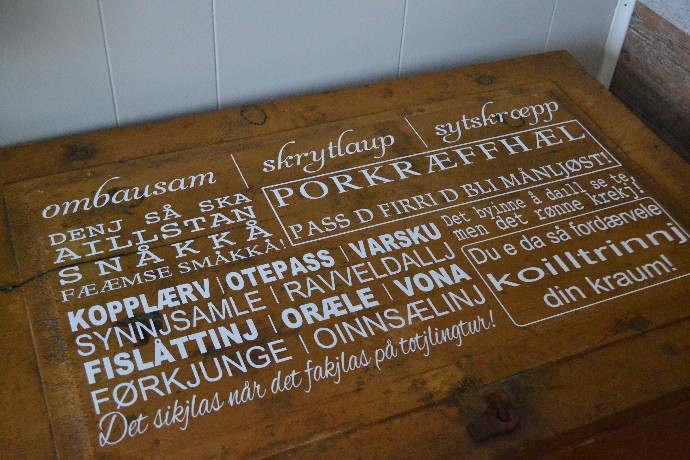 ombausam | skrytlaup | sytskræpp
DENJ SÅ SKA
AILLSTAN
SNÅKKÅ
FÆÆMSE SMÅKKÅ!
PORKRÆFFHÆL
PASS D FIRRI D BLI MÅNLJØST!
Det byinne å daill se te
men det rønne krekj!
KOPPLÆRV | OTEPASS | VARSKU
SYNNJSAMLE | RAVVELDALLJ
FISLÅTTINJ | ORÆLE | VONA
FØRKJUNGE | OINNSÆLINJ
Det sikjlas når det fakjlas på totjlingtur!
Du e da så fordærvele
koilltrinnj
din kraum!